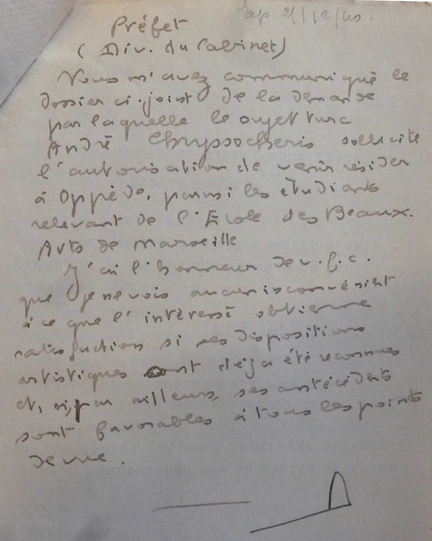 Préfet
21/12/40.
(Div. du Cabinet)
Vous m'avez communiqué le
dossier ci-joint de la demande
par laquelle le sujet turc
André Chryssocheris sollicite
l'autorisation de venir résider
à Oppède, parmi les étudiants
relevant de l'Ecole des Beaux-
Arts de Marseille
J'ai l'honneur de v. f. c.
que je ne vois aucun inconvénient
à ce que l'intéressé obtienne
satisfaction si ses dispositions
artistiques ont déjà été reconnues
et, si par ailleurs, ses antécédents
sont favorables à tous les points
de vue.